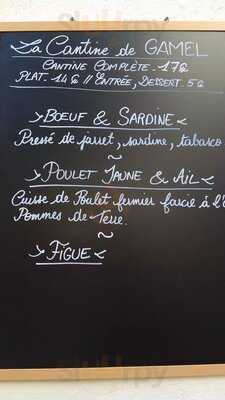 La Cantine de GAMEL
CANTINE COMPLÈTE. 17€
PLAT. 14€ // ENTRÉE, DESSERT. 5€
BOEUF & SARDINE
Pressé de jarret, sardine, tabasco
~
POULET JAUNE & AIL
Cuisse de Poulet fermier farcie à l'
Pommes de Terre.
~
FIGUE